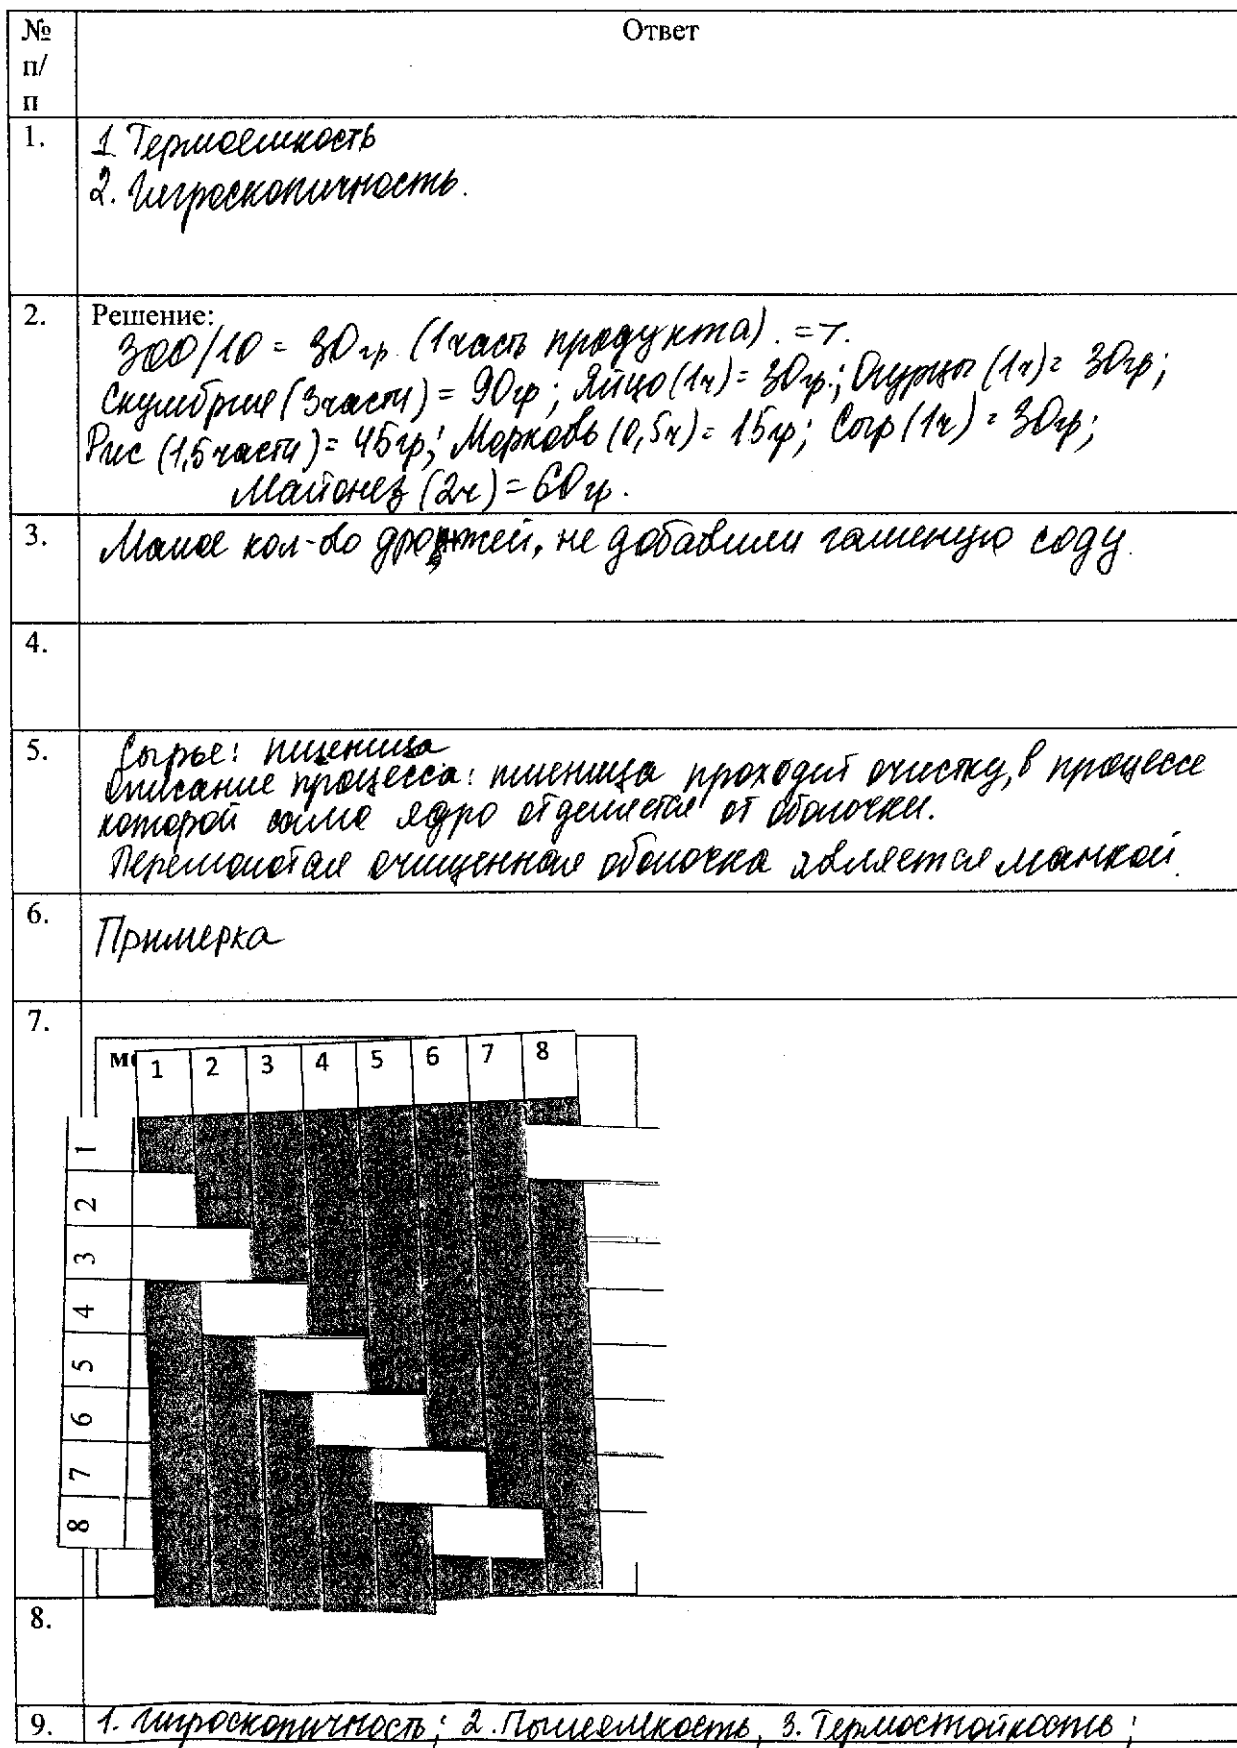 № п/п Ответ
1. 1. Термоемкость
2. Гигроскопичность.
2. Решение:
300/10 = 30гр. (1часть продукта). =>.
Скумбрия (3части) = 90гр; Яйцо (1ч) = 30гр.; Огурцы (1ч) = 30гр;
Рис (1,5части) = 45гр; Морковь (0,5ч) = 15гр; Сыр (1ч) = 30гр;
Майонез (2ч) = 60гр.
3. Малое кол-во дрожжей, не добавили гашеную соду.
4.
5. Сырье: пшеница
Описание процесса: пшеница проходит очистку, в процессе
которой само ядро отделяется от оболочки.
Перемолотая очищенная оболочка является манкой.
6. Примерка
7.
1 2 3 4 5 6 7 8
1
2
3
4
5
6
7
8
8.
9. 1. Гигроскопичность; 2. Пылеемкость, 3. Термостойкость;